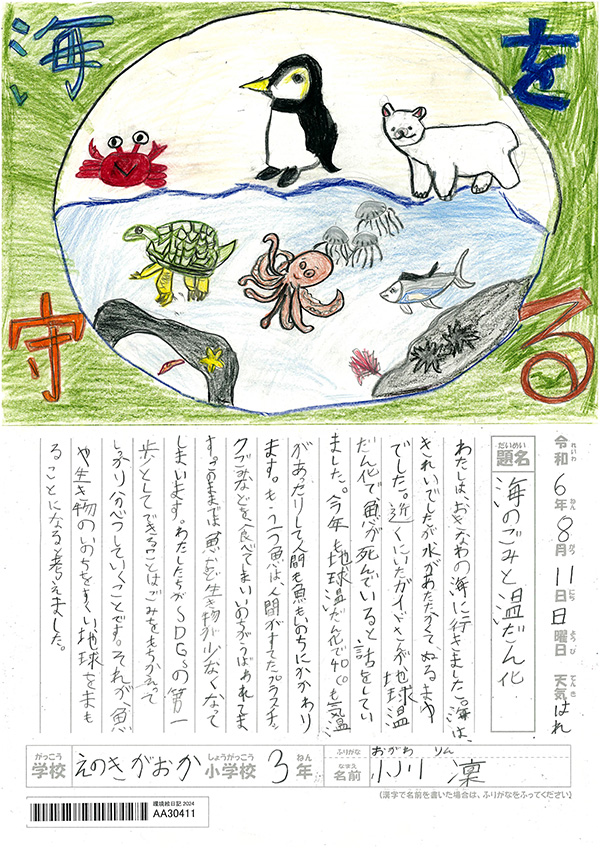 海を
守る
令和6年8月11日日曜日 天気はれ
れいわ ねん がつ にち ようび てんき
だいめい
題名 海のごみと温だん化
わたしは、おきなわの海に行きました。海は、
きれいでしたが水があたたかくて、ぬるまゆ
でした。近くにいたガイドさんが、地球温
だん化で魚が死んでいると話をしてい
ました。今年も地球温だん化で40℃も気温
があったりして人間も魚もいのちにかかわり
ます。もう一つ魚は、人間がすてたプラスチッ
クごみなどを食べてしまいいのちがうばわれてま
す。このままでは魚など生き物が少なくなって
しまいます。わたしたちがSDGsの第一
歩としてできることはごみをもちかえって
しっかり分べつしていくことです。それが、魚
や生き物のいのちをすくい地球をまも
ることになると考えました。
がっこう しょうがっこう ねん
学校 えのきがおか小学校 3年
ふりがな おがわ りん
なまえ
名前 小川 凜
(漢字で名前を書いた場合は、ふりがなをふってください)
環境絵日記2024
AA30411